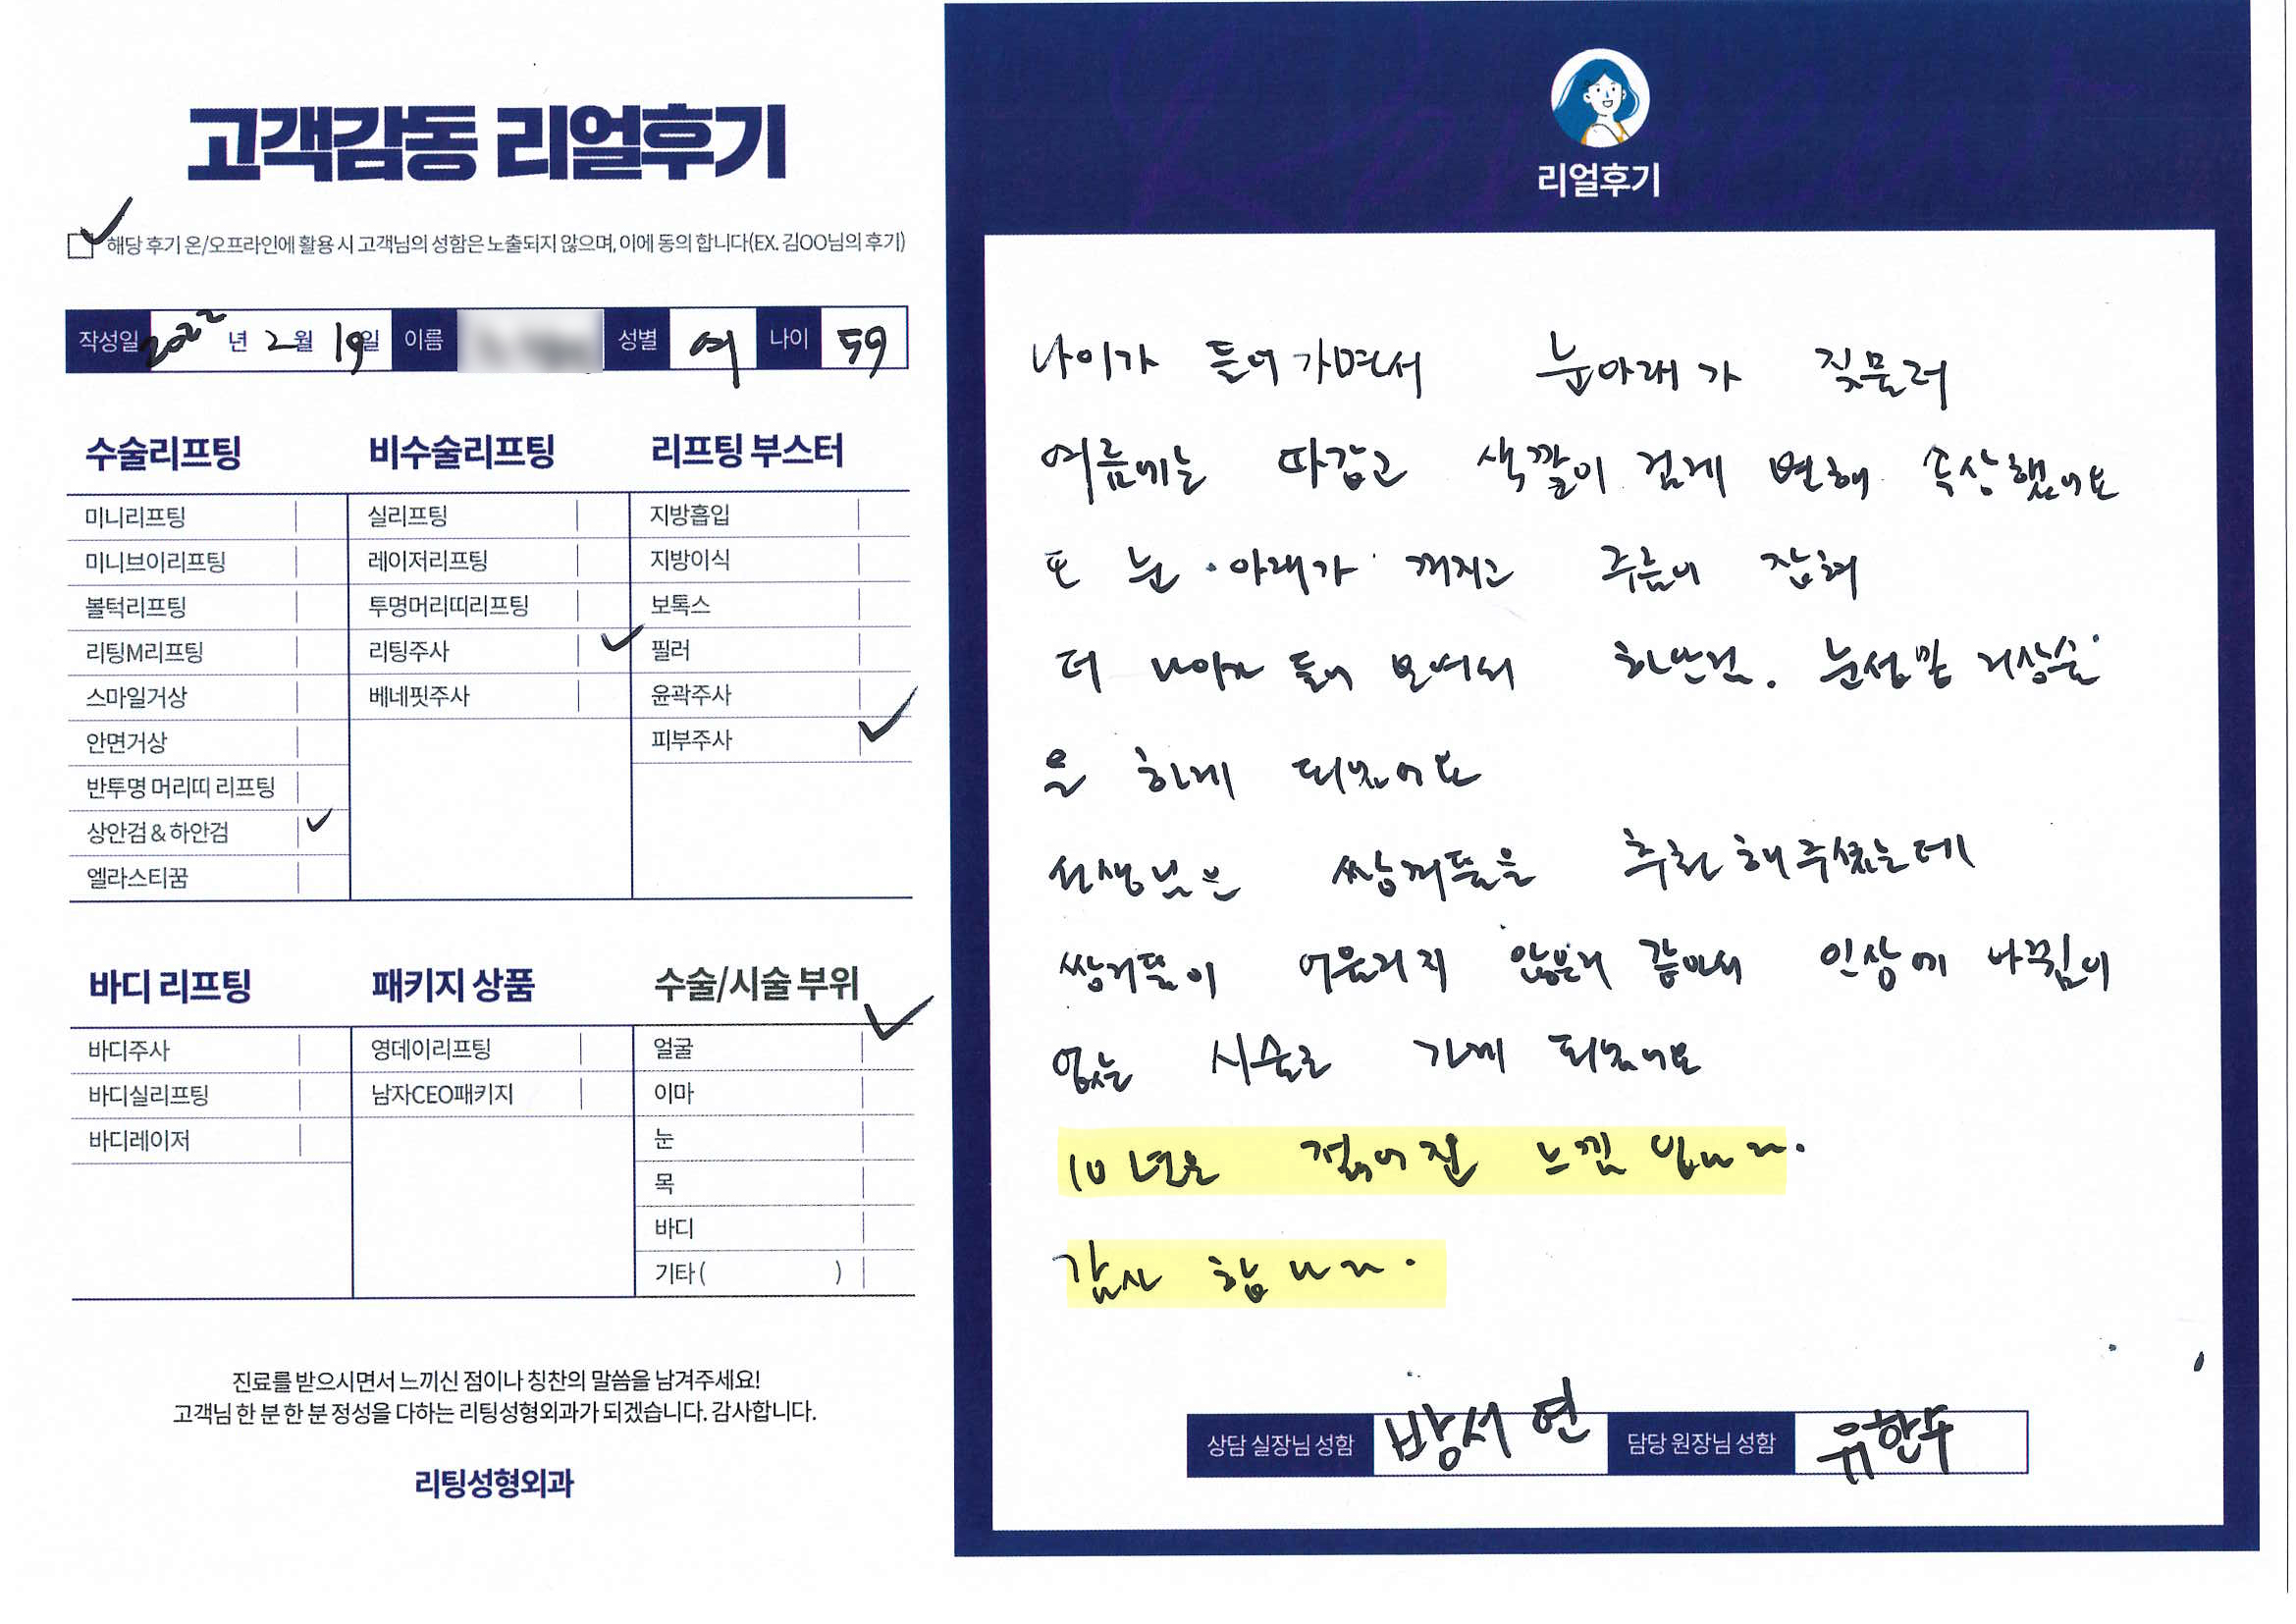 고객감동 리얼후기
해당 후기 온/오프라인에 활용 시 고객님의 성함은 노출되지 않으며, 이에 동의 합니다(EX. 김OO님의 후기)
작성일 2022년 2월 19일 이름 성별 여 나이 59
수술리프팅
미니리프팅
미니브이리프팅
볼턱리프팅
리팅M리프팅
스마일거상
안면거상
반투명 머리띠 리프팅
상안검 & 하안검
엘라스티꿈
비수술리프팅
실리프팅
레이저리프팅
투명머리띠리프팅
리팅주사
베네핏주사
리프팅 부스터
지방흡입
지방이식
보톡스
필러
윤곽주사
피부주사
바디 리프팅
바디주사
바디실리프팅
바디레이저
패키지 상품
영데이리프팅
남자CEO패키지
수술/시술 부위
얼굴
이마
눈
목
바디
기타 ( )
진료를 받으시면서 느끼신 점이나 칭찬의 말씀을 남겨주세요!
고객님 한 분 한 분 정성을 다하는 리팅성형외과가 되겠습니다. 감사합니다.
리팅성형외과
리얼후기
나이가 들어가면서 눈아래가 짖물러
여름에는 따갑고 색깔이 검게 변해 속상했어요
또 눈 아래가 꺼지고 주름이 잡혀
더 나이가 들어 보여서 하안검. 눈썹밑 거상술
을 하게 되었어요
선생님은 쌍꺼풀을 추천해주셨는데
쌍꺼풀이 어울리지 않을거 같아서 인상에 바뀜이
없는 시술로 하게 되었어요
10년은 젊어진 느낌 입니다.
감사 합니다.
상담 실장님 성함 방서연 담당 원장님 성함 유한수